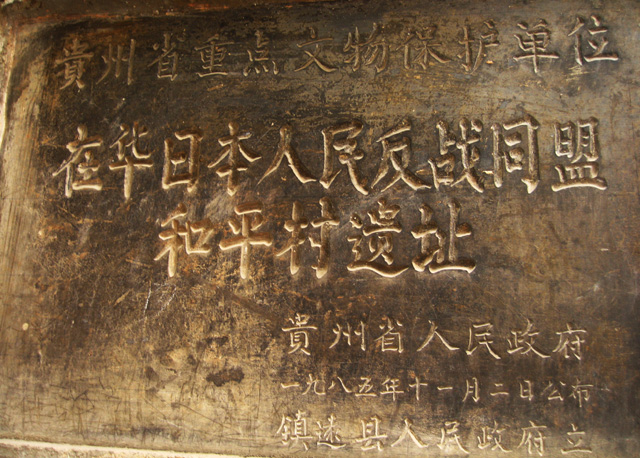 貴州省重点文物保护单位
在华日本人民反战同盟
和平村遗址
貴州省人民政府
一九八五年十一月二日公布
镇远县人民政府立